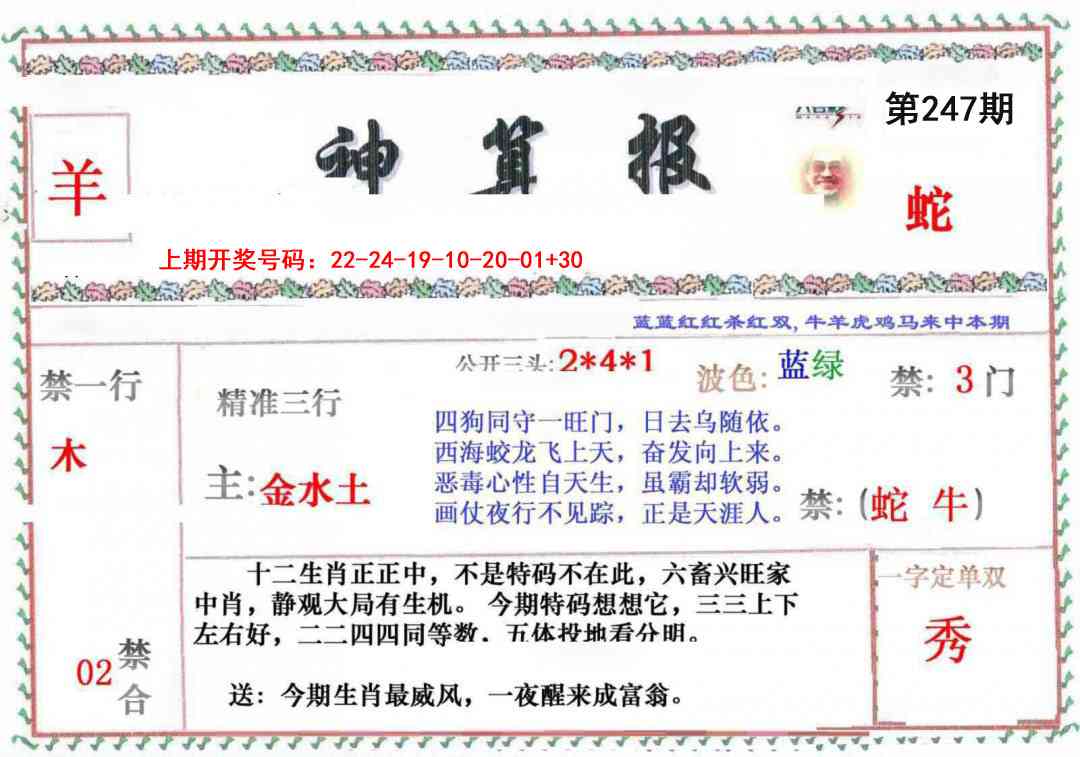 第247期
神算报
羊
蛇
上期开奖号码：22-24-19-10-20-01+30
蓝蓝红红杀红双,牛羊虎鸡马来中本期
公开三头:2*4*1
禁一行
精准三行
波色:蓝绿
禁:3门
木
主:金水土
四狗同守一旺门，日去乌随依。
西海蛟龙飞上天，奋发向上来。
恶毒心性自天生，虽霸却软弱。
画仗夜行不见踪，正是天涯人。
禁:(蛇 牛)
十二生肖正正中，不是特码不在此，六畜兴旺家
中肖，静观大局有生机。 今期特码想想它，三三上下
左右好，二二四四同等数，五体投地看分明。
一字定单双
秀
02禁合
送：今期生肖最威风，一夜醒来成富翁。